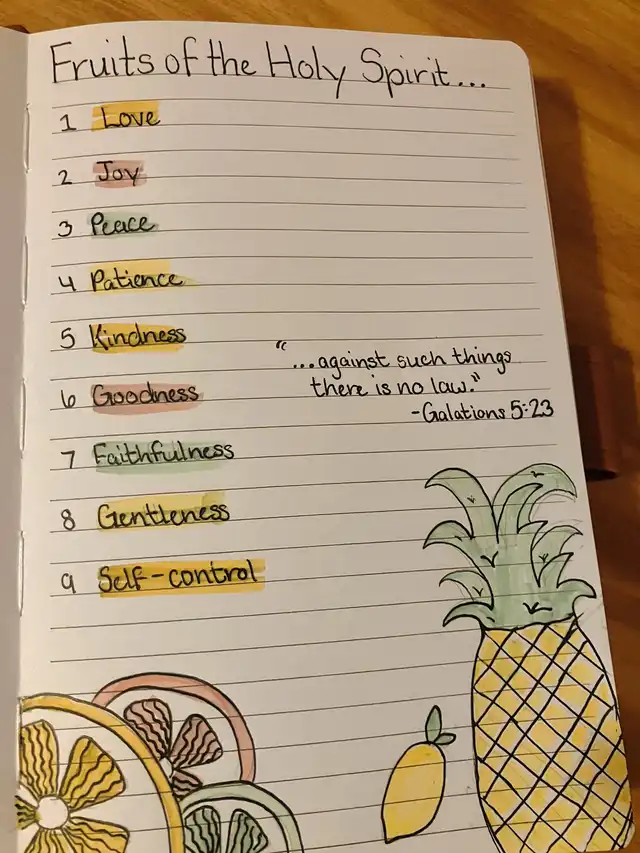 Fruits of the Holy Spirit...
1 Love
2 Joy
3 Peace
4 Patience
5 Kindness
6 Goodness
7 Faithfulness
8 Gentleness
9 Self-control
"...against such things
there is no law."
-Galations 5:23